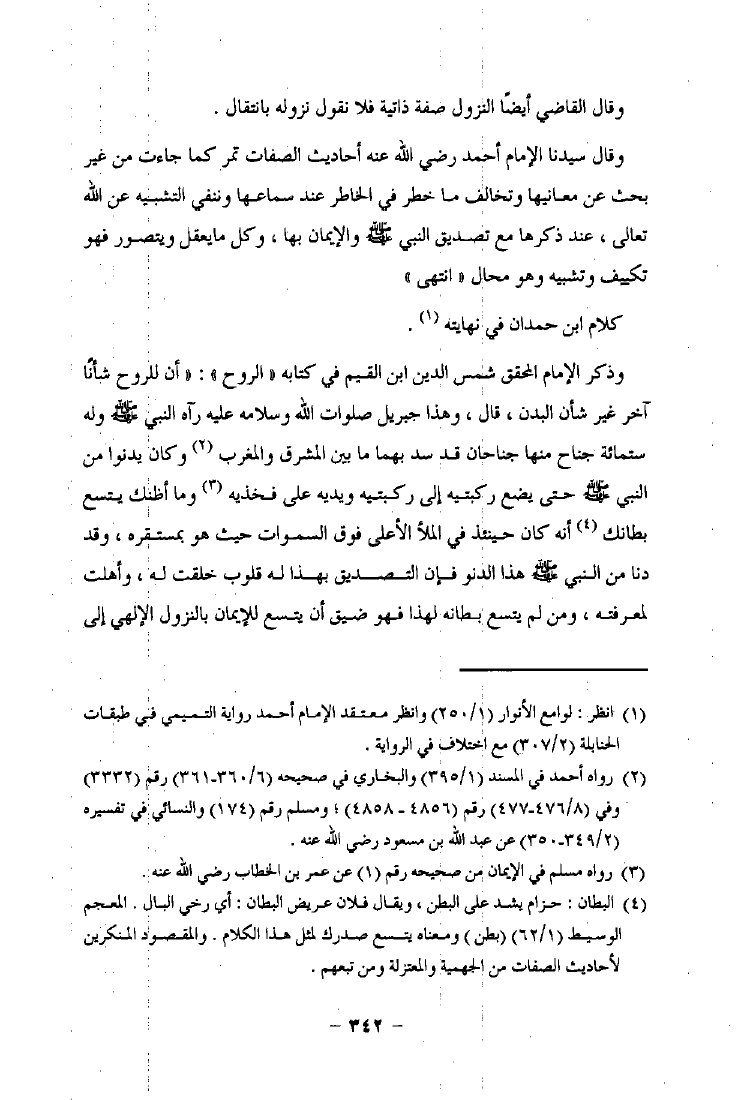 وقال القاضي أيضًا النزول صفة ذاتية فلا نقول نزوله بانتقال .
وقال سيدنا الإمام أحمد رضي الله عنه أحاديث الصفات تمر كما جاءت من غير
بحث عن معانيها وتخالف ما خطر في الخاطر عند سماعها وننفي التشبيه عن الله
تعالى ، عند ذكرها مع تصديق النبي ﷺ والإيمان بها ، وكل مايعقل ويتصور فهو
تكييف وتشبيه وهو محال « انتهى »
كلام ابن حمدان في نهايته (١) .
وذكر الإمام المحقق شمس الدين ابن القيم في كتابه « الروح » : « أن للروح شأنًا
آخر غير شأن البدن ، قال ، وهذا جبريل صلوات الله وسلامه عليه رآه النبي ﷺ وله
ستمائة جناح منها جناحان قد سد بهما ما بين المشرق والمغرب (٢) وكان يدنوا من
النبي ﷺ حتى يضع ركبتيه إلى ركبتيه ويديه على فخذيه (٣) وما أظنك يتسع
بطانك (٤) أنه كان حينئذ في الملأ الأعلى فوق السموات حيث هو بمستقره ، وقد
دنا من النبي ﷺ هذا الدنو فإن التصديق بهذا له قلوب خلقت له ، وأهلت
لمعرفته ، ومن لم يتسع بطانه لهذا فهو ضيق أن يتسع للإيمان بالنزول الإلهي إلى
(١) انظر : لوامع الأنوار (٢٥٠/١) وانظر معتقد الإمام أحمد رواية التميمي في طبقات
الحنابلة (٣٠٧/٢) مع اختلاف في الرواية .
(٢) رواه أحمد في المسند (٣٩٥/١) والبخاري في صحيحه (٣٦٠/٦-٣٦١) رقم (٣٣٣٢)
وفي (٤٧٦/٨-٤٧٧) رقم (٤٨٥٦ - ٤٨٥٨) ؛ ومسلم رقم (١٧٤) والنسائي في تفسيره
(٣٤٩/٢-٣٥٠) عن عبد الله بن مسعود رضي الله عنه .
(٣) رواه مسلم في الإيمان من صحيحه رقم (١) عن عمر بن الخطاب رضي الله عنه .
(٤) البطان : حزام يشد على البطن ، ويقال فلان عريض البطان : أي رخي البال . المعجم
الوسيط (٦٢/١) (بطن) ومعناه يتسع صدرك لمثل هذا الكلام . والمقصود المنكرين
لأحاديث الصفات من الجهمية والمعتزلة ومن تبعهم .
- ٣٤٢ -